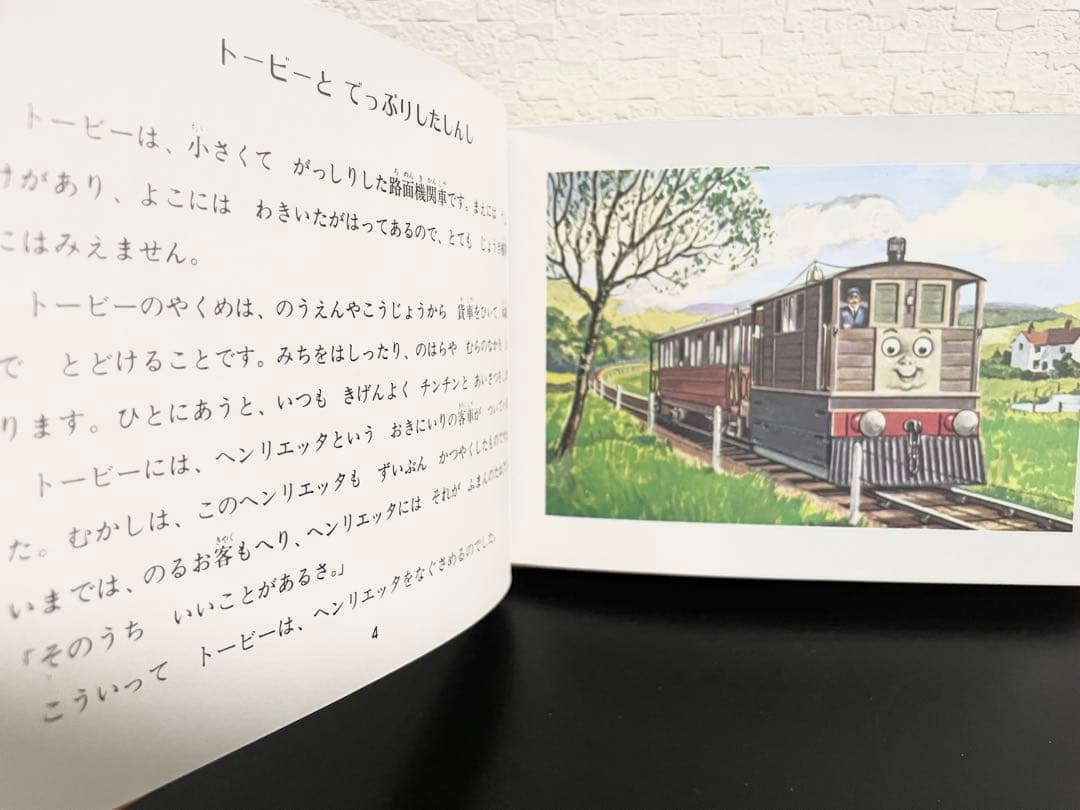 トービーと でっぷりしたしんし
トービーは、小さくて がっしりした路面機関車です。まえには
けがあり、よこには わきいたがはってあるので、とても じょうき
にはみえません。
トービーのやくめは、のうえんやこうじょうから 貨車をひいて、
で とどけることです。みちをはしったり、のはらや むらのなかを
ります。ひとにあうと、いつも きげんよく チンチンと あいさつを
トービーには、ヘンリエッタという おきにいりの客車が ついてい
た。むかしは、このヘンリエッタも ずいぶん かつやくしたものです
いまでは、のるお客もへり、ヘンリエッタには それが ふまんのたね
「そのうち いいことがあるさ。」
こういって トービーは、ヘンリエッタをなぐさめるのでした。
4